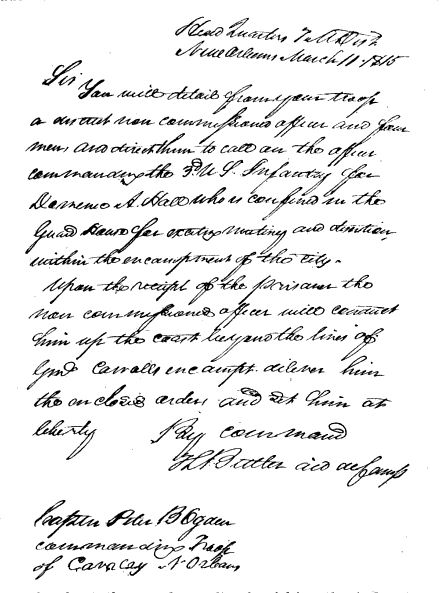 Head Quarters 7 M Dist
New Orleans March 11 1815
Sir
You will detail from your troop
a discreet non commissioned officer and four
men, and direct him to call on the officer
commanding the 3d U S. Infantry for
Domenic A. Hall who is confined in the
Guard House for exciting mutiny and desertion,
within the encampment of the city.
Upon the receipt of the prisoner the
non commissioned officer will conduct
him up the coast beyond the lines of
Genl Carrolls encampt. deliver him
the enclosed orders and set him at
liberty By command
Butler aid de Camp
Captn Peter B Ogden
commanding Troop
of Cavalry N Orleans